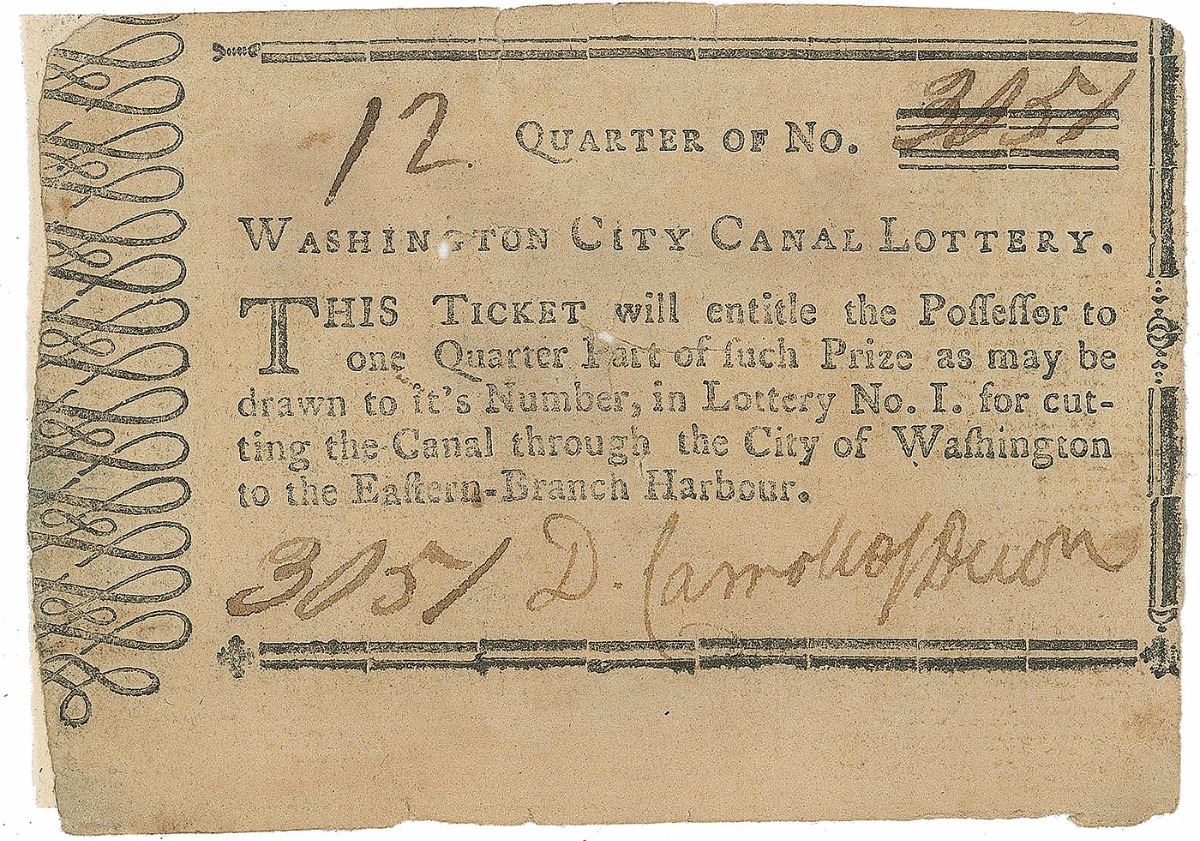 12. QUARTER OF No. 3051
WASHINGTON CITY CANAL LOTTERY.
THIS TICKET will entitle the Poſſeſſor to
one Quarter Part of ſuch Prize as may be
drawn to it's Number, in Lottery No. I. for cut-
ting the Canal through the City of Waſhington
to the Eaſtern-Branch Harbour.
3051 D. Carroll of Duddn